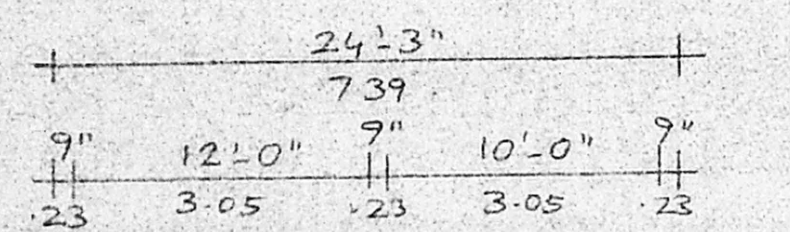 24'-3"
7 39
9" 12'-0" 9" 10'-0" 9"
.23 3.05 .23 3.05 .23